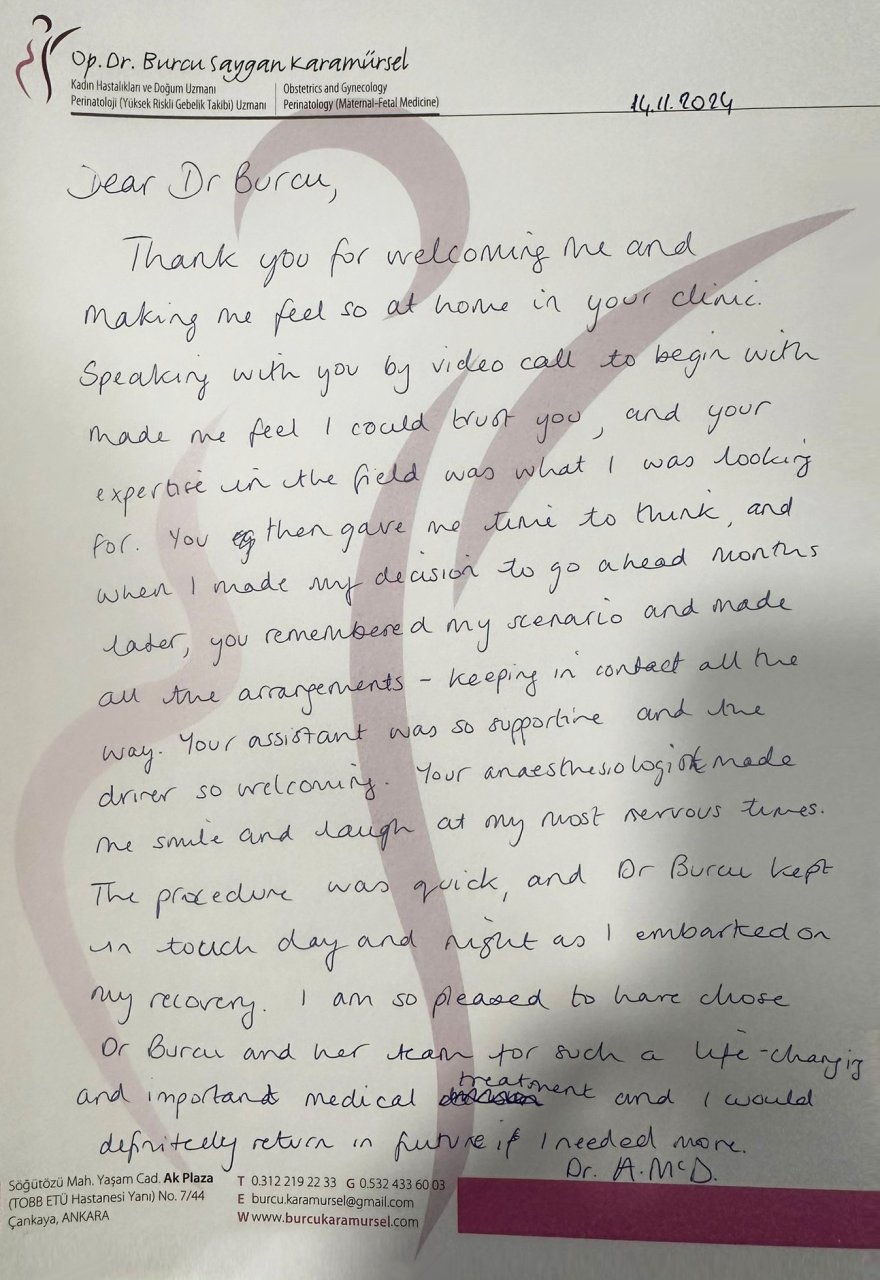 Op. Dr. Burcu Saygan Karamürsel
Kadın Hastalıkları ve Doğum Uzmanı
Perinatoloji (Yüksek Riskli Gebelik Takibi) Uzmanı
Obstetrics and Gynecology
Perinatology (Maternal-Fetal Medicine)
14.11.2024
Dear Dr Burcu,
Thank you for welcoming me and
making me feel so at home in your clinic.
Speaking with you by video call to begin with
made me feel I could trust you, and your
expertise in the field was what I was looking
for. You then gave me time to think, and
when I made my decision to go ahead months
later, you remembered my scenario and made
all the arrangements - keeping in contact all the
way. Your assistant was so supportive and the
driver so welcoming. Your anaesthesiologist made
me smile and laugh at my most nervous times.
The procedure was quick, and Dr Burcu kept
in touch day and night as I embarked on
my recovery. I am so pleased to have chose
Dr Burcu and her team for such a life-changing
and important medical treatment and I would
definitely return in future if I needed more.
Dr. A. McD.
Söğütözü Mah. Yaşam Cad. Ak Plaza
(TOBB ETÜ Hastanesi Yanı) No. 7/44
Çankaya, ANKARA
T 0.312 219 22 33 G 0.532 433 60 03
E burcu.karamursel@gmail.com
W www.burcukaramursel.com